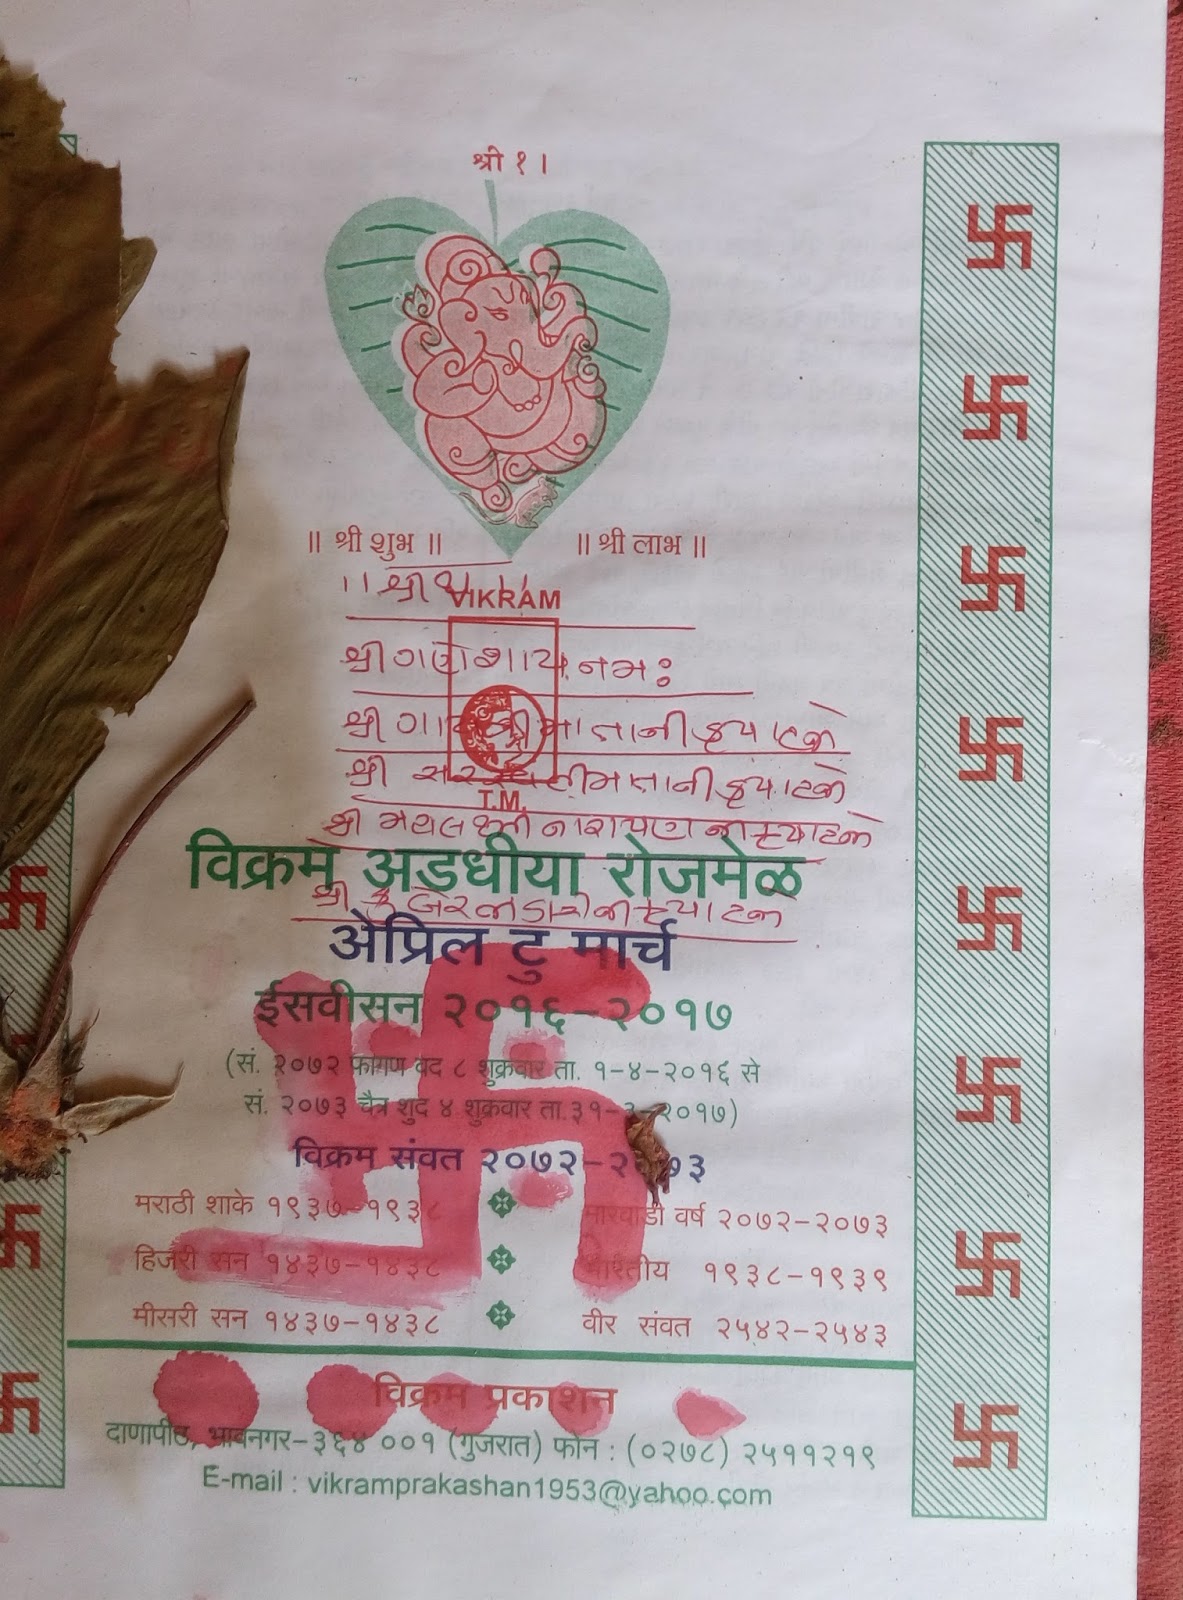 श्री १ ।
॥ श्री शुभ ॥ ॥ श्री लाभ ॥
।। શ્રી
VIKRAM
શ્રી ગણેશાય નમઃ
શ્રી ગાયત્રી માતાની કૃપા હજો
શ્રી સરસ્વતી માતાની કૃપા હજો
T.M.
શ્રી મહાલક્ષ્મી નારાયણ ની કૃપા હજો
विक्रम अडधीया रोजमेळ
શ્રી કુબેર ભંડારી ની કૃપા હજો
अेप्रिल टु मार्च
ईसवीसन २०१६-२०१७
(सं. २०७२ फागण वद ८ शुक्रवार ता. १-४-२०१६ से
सं. २०७३ चैत्र शुद ४ शुक्रवार ता.३१-३-२०१७)
विक्रम संवत २०७२-२०७३
मराठी शाके १९३७-१९३८ मारवाडी वर्ष २०७२-२०७३
हिजरी सन १४३७-१४३८ भारतीय १९३८-१९३९
मीसरी सन १४३७-१४३८ वीर संवत २५४२-२५४३
विक्रम प्रकाशन
दाणापीठ, भावनगर-३६४ ००१ (गुजरात) फोन : (०२७८) २५११२१९
E-mail : vikramprakashan1953@yahoo.com